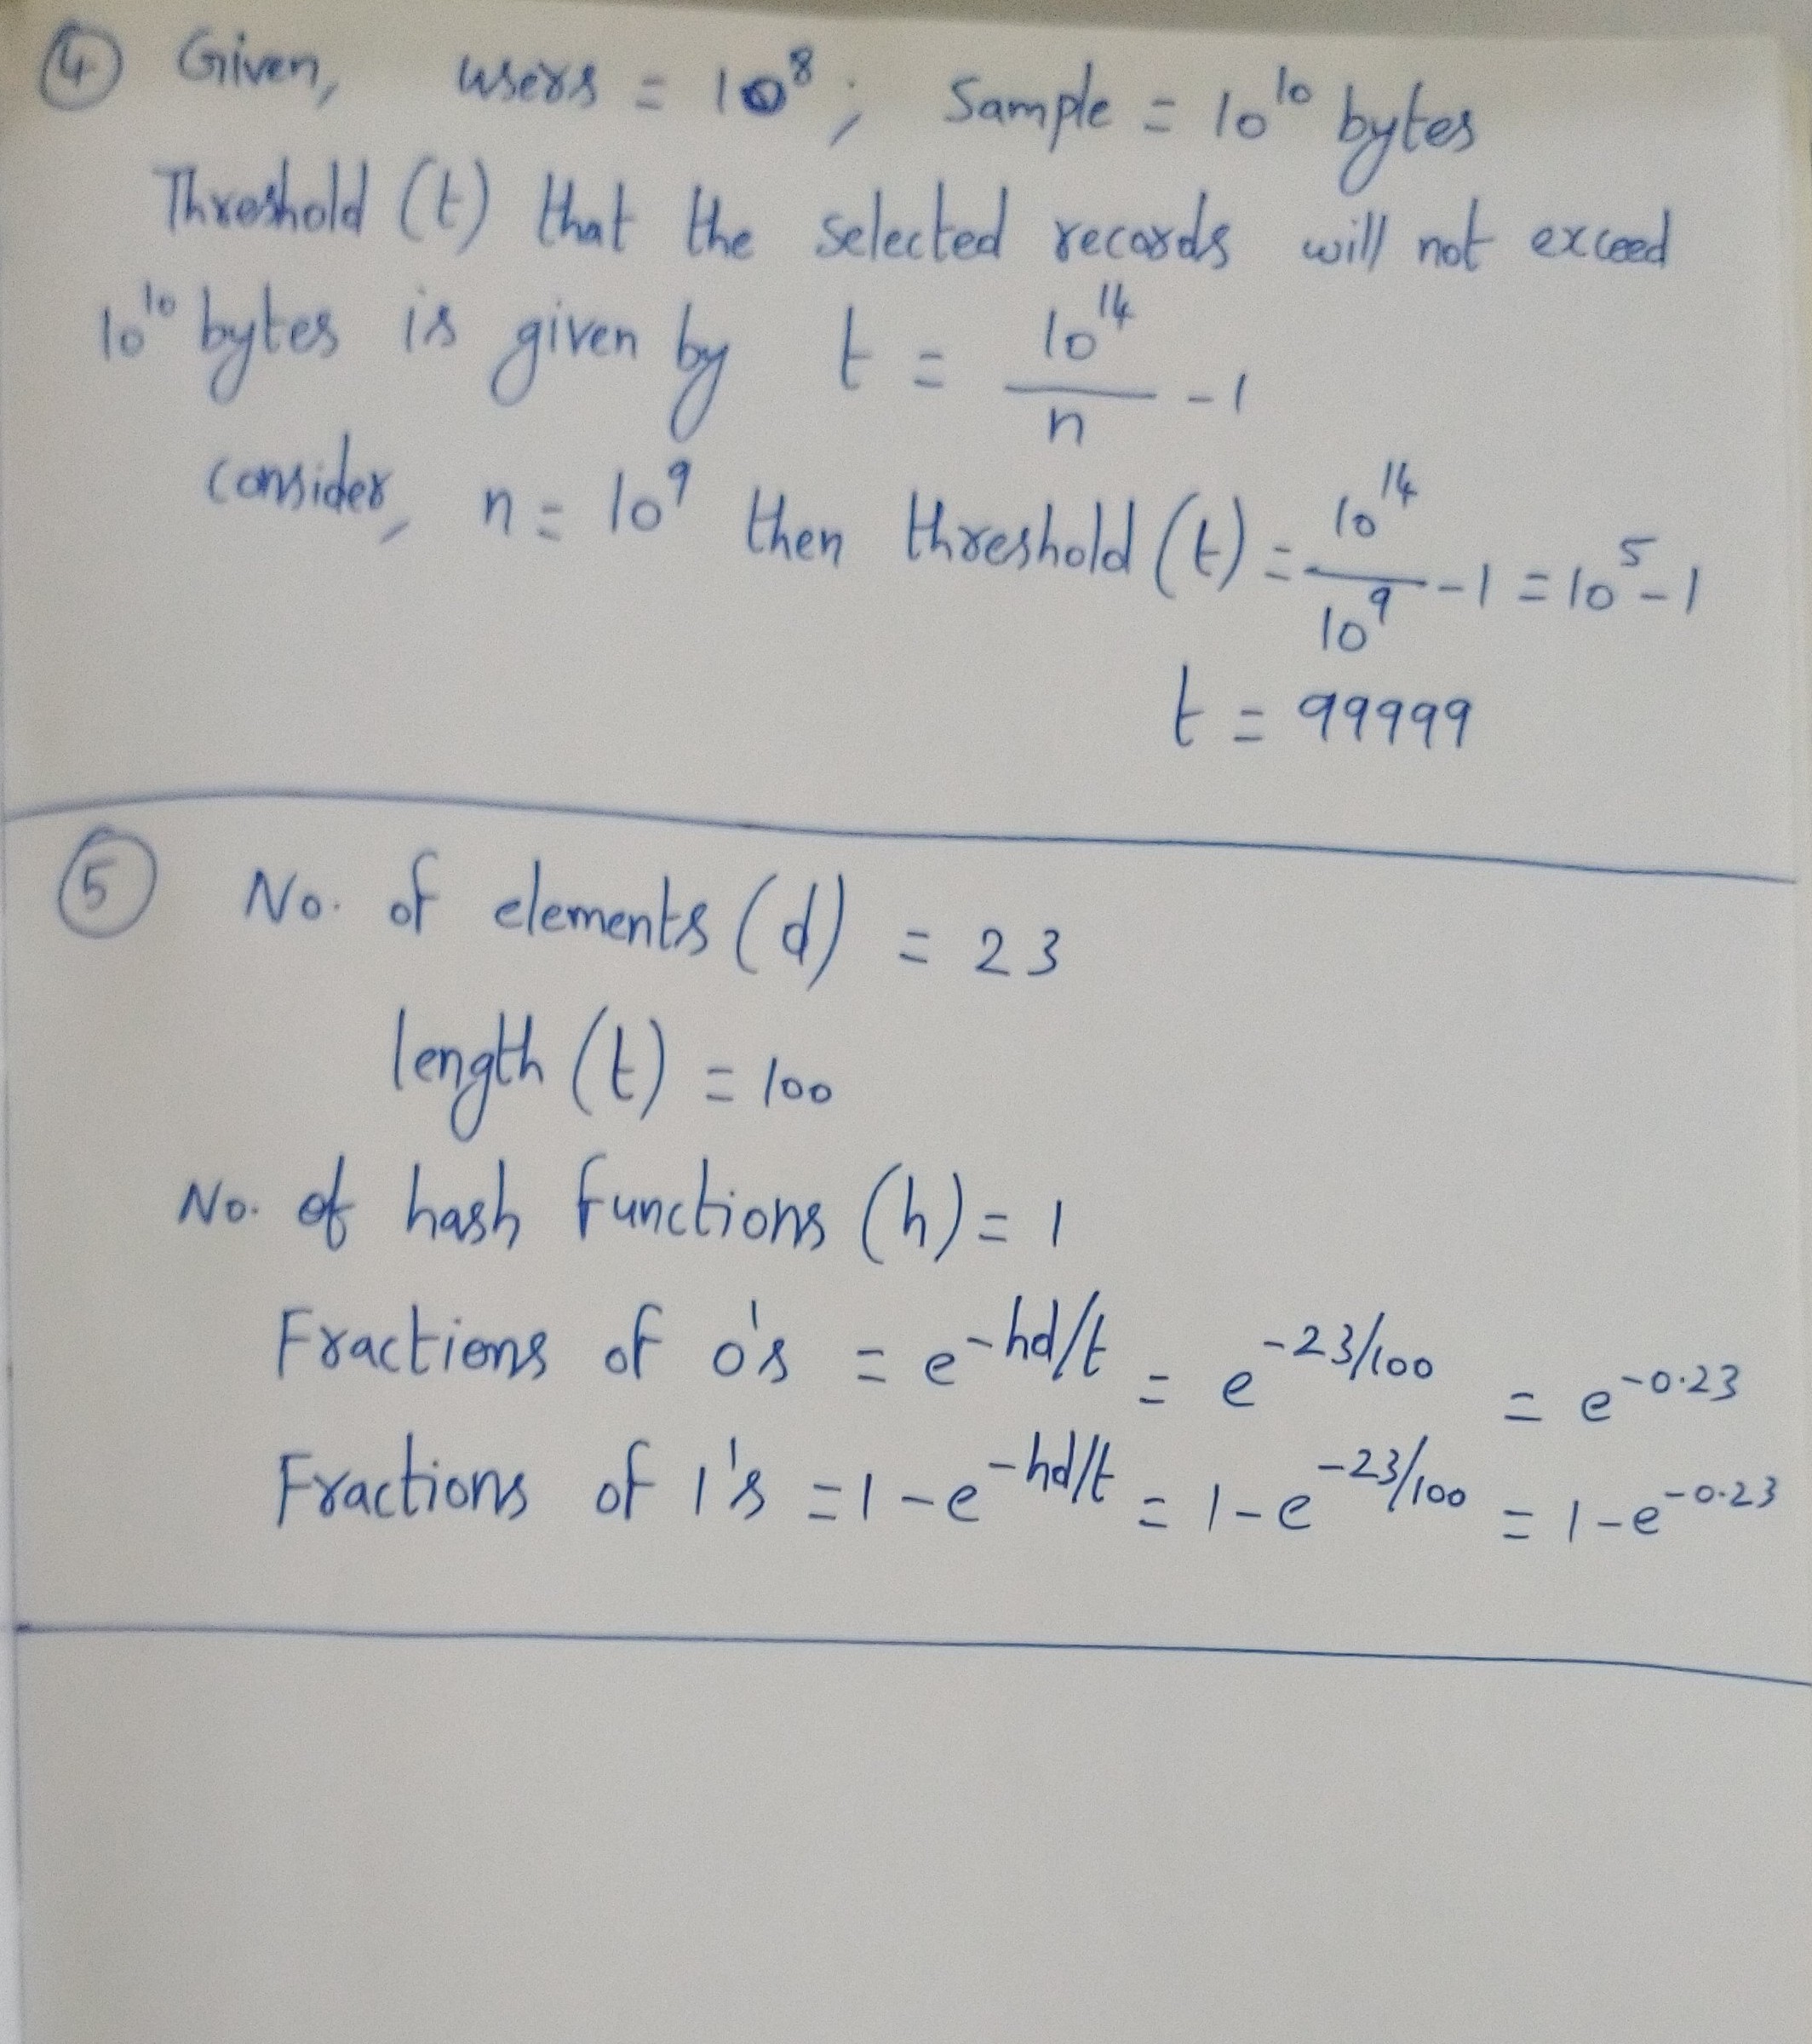 ④ Given, users = 10⁸; Sample = 10¹⁰ bytes
Threshold (t) that the selected records will not exceed
10¹⁰ bytes is given by t = 10¹⁴/n - 1
consider, n = 10⁹ then threshold (t) = 10¹⁴/10⁹ - 1 = 10⁵ - 1
t = 99999
⑤ No. of elements (d) = 23
length (t) = 100
No. of hash functions (h) = 1
Fractions of 0's = e^-hd/t = e^-23/100 = e^-0.23
Fractions of 1's = 1 - e^-hd/t = 1 - e^-23/100 = 1 - e^-0.23